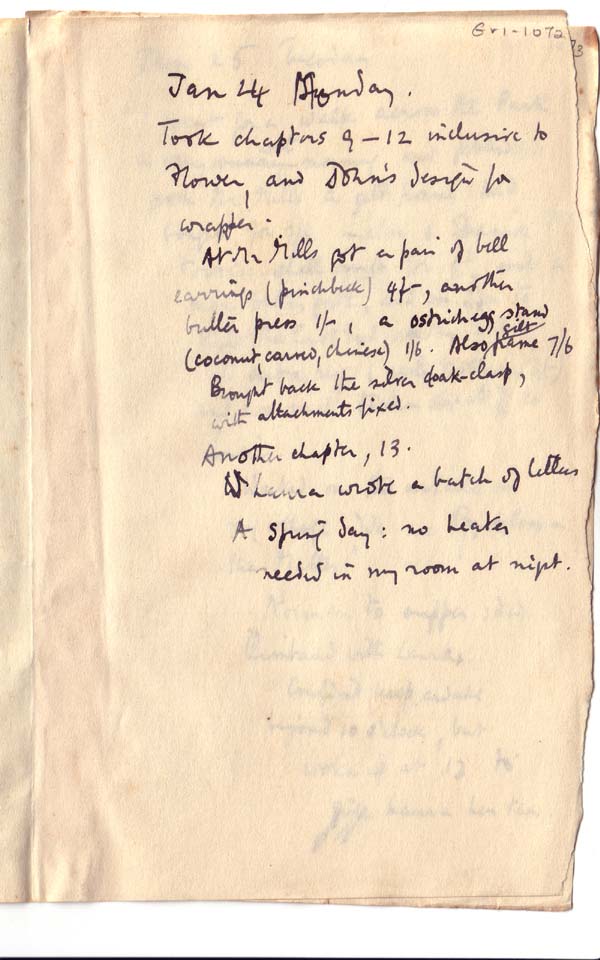 Gr1-1072
73
Jan 24 Monday.
Took chapters 9–12 inclusive to
Flower, and Dohn's design for
wrapper.
At Mr Mills got a pair of bell
earrings (pinchbeck) 4/-, another
butter press 1/-, a ostrich egg stand
(coconut, carved, chinese) 1/6. Also gilt frame 7/6
Brought back the silver cloak-clasp,
with attachments fixed.
Another chapter, 13.
Laura wrote a batch of letters
A Spring day: no heater
needed in my room at night.